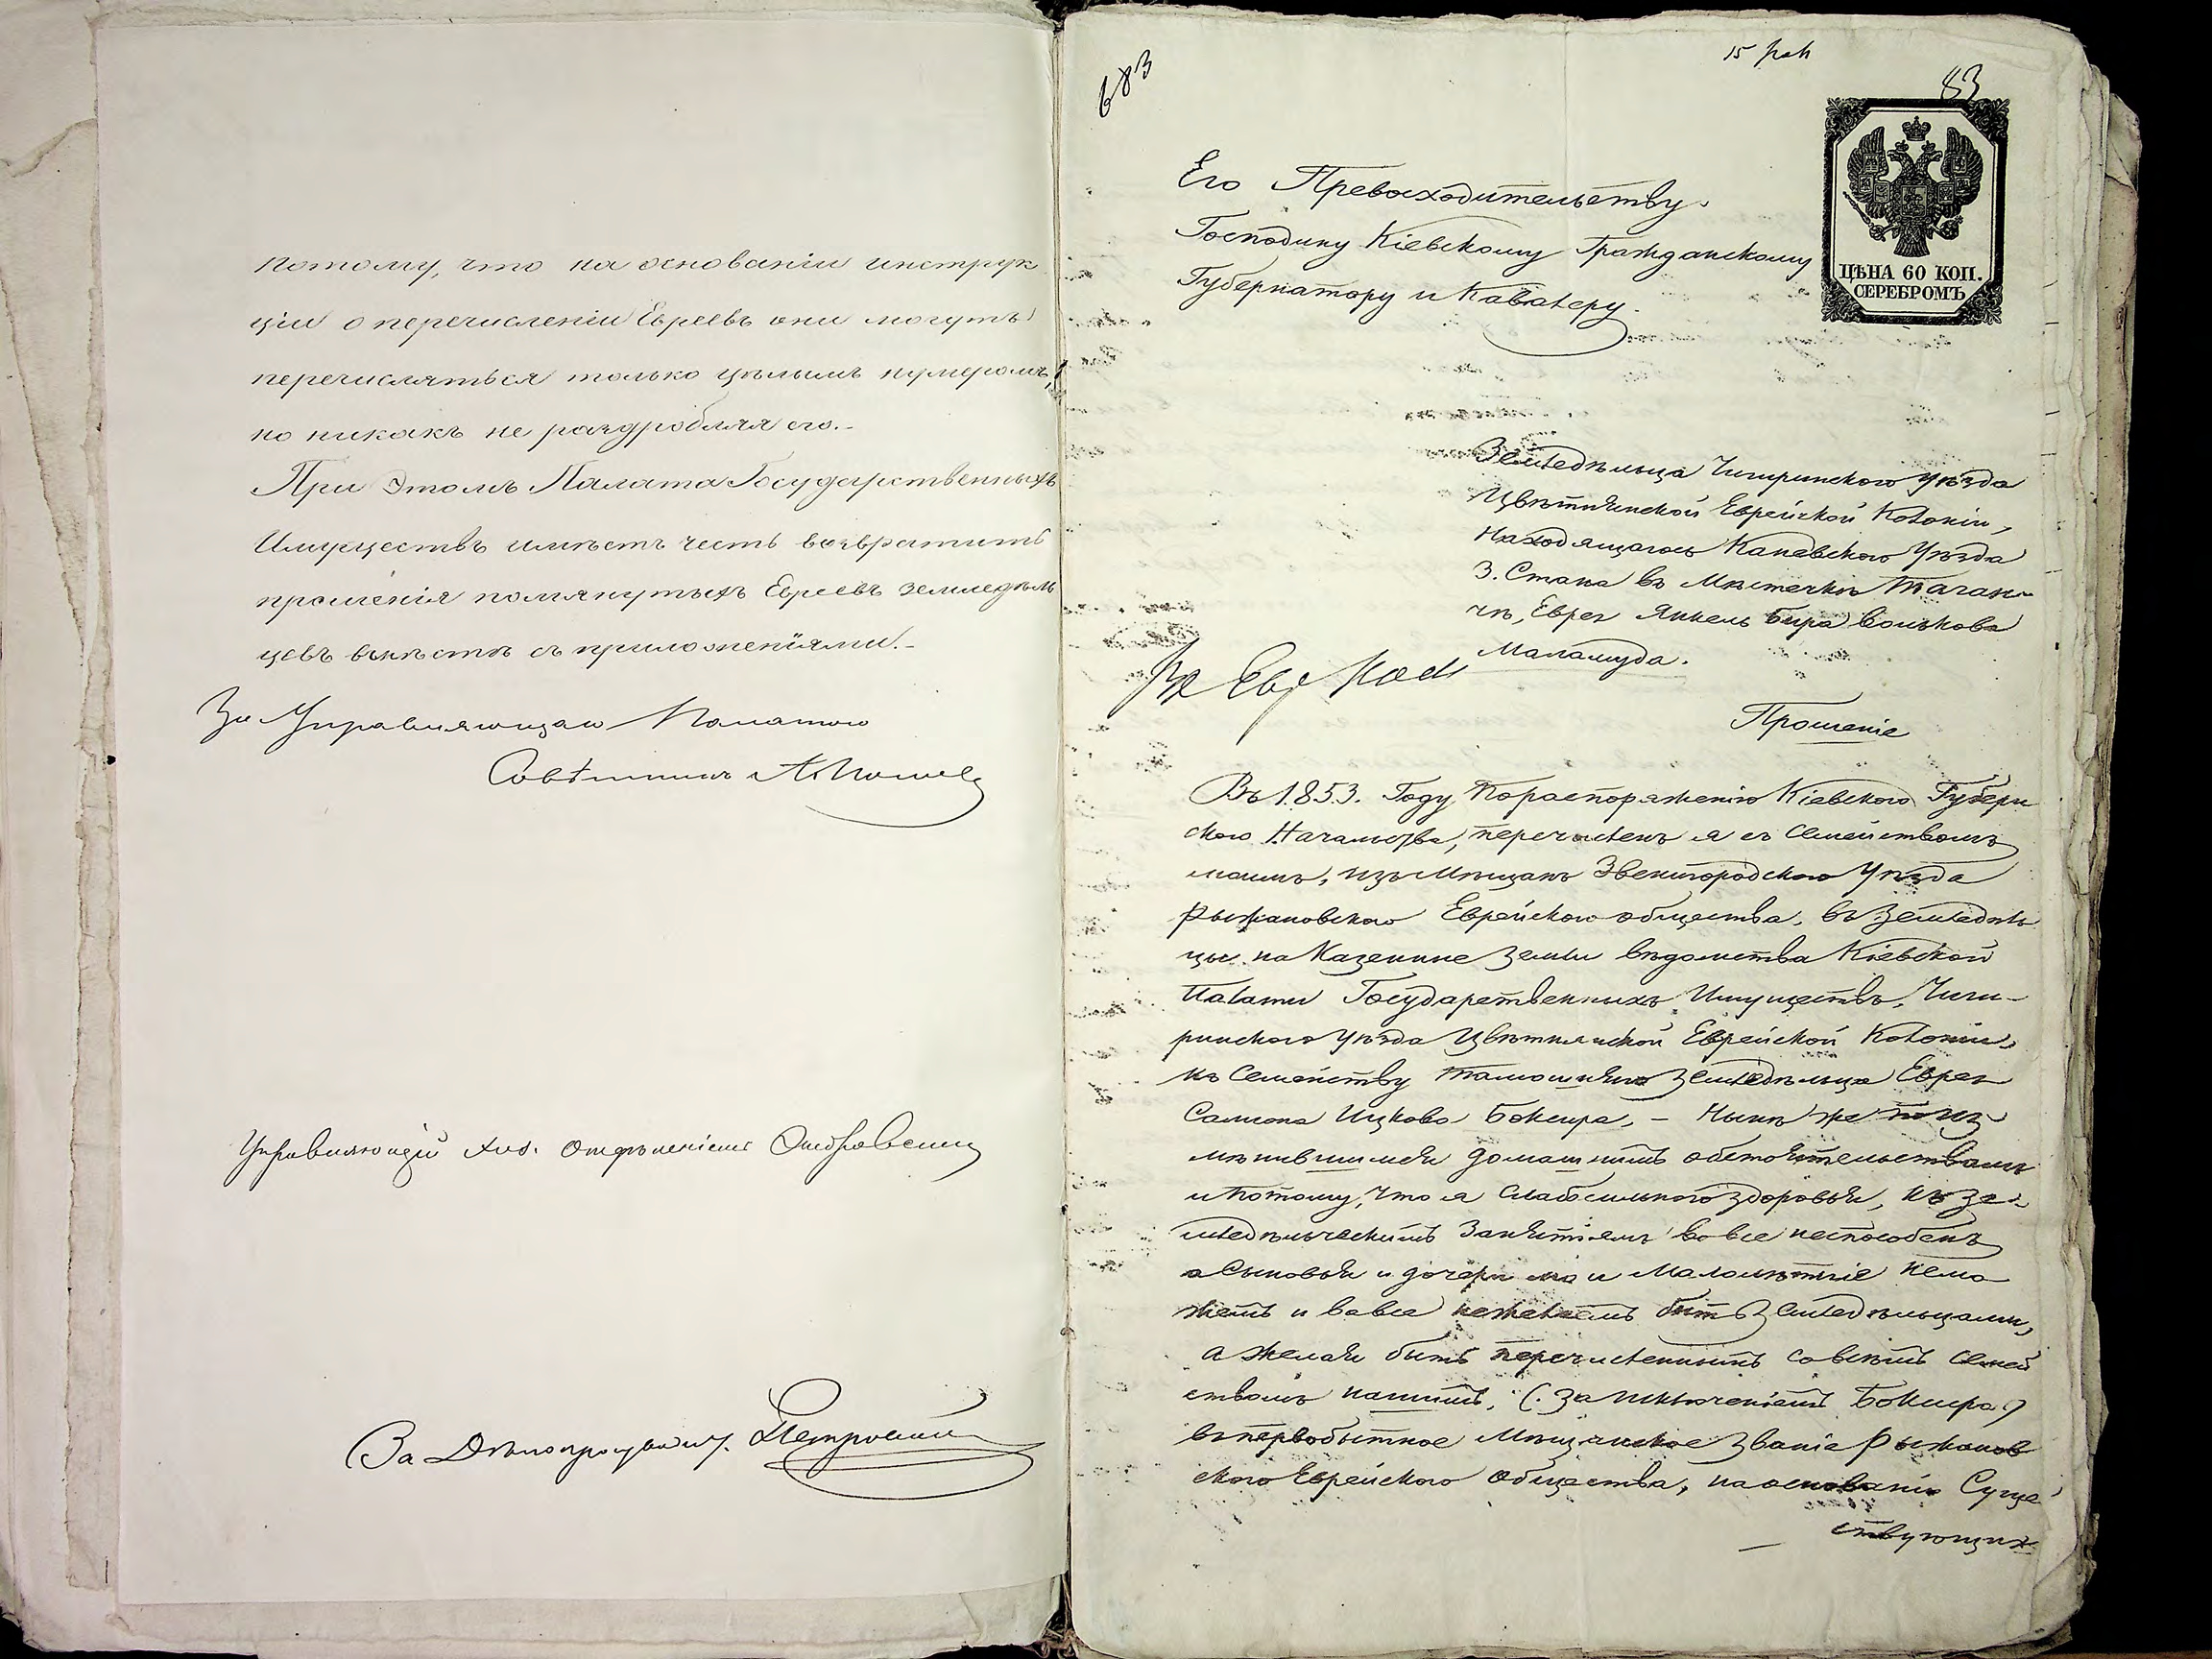 потому, что на основаніи инструк
ціи о перечисленіи Евреевъ они могутъ
перечисляться только цѣлымъ нумеромъ,
но никакъ не раздробляя его.-
При этомъ Палата Государственныхъ
Имуществъ имѣетъ честь возвратить
прошенія помянутыхъ Евреевъ земледѣль
цевъ вмѣстѣ съ приложеніями.-
За Управляющаго Палатою
Совѣтникъ
Управляющій Отдѣленіемъ
За Дѣлопроизвод.
683
15
83
ЦѢНА 60 КОП.
СЕРЕБРОМЪ
Его Превосходительству.
Господину Кіевскому Гражданскому
Губернатору и Кавалеру.
Земледѣльца Чигиринскаго уѣзда
Цвѣтнянской Еврейской Колоніи,
Находящагося Каневскаго Уѣзда
3. Стана въ Мѣстечкѣ Таган-
чѣ, Еврея Янкеля Бера Волькова
Маламуда.
Прошеніе
Въ 1853. Году По распоряженію Кіевского Губерн
ского Начальства, перечисленъ я съ Семействомъ
моимъ, изъ Мѣщанъ Звенигородского Уѣзда
Рыжановского Еврейского общества, въ земледѣль
цы на Казенные земли вѣдомства Кіевской
Палаты Государственныхъ Имуществъ, Чиги-
ринского уѣзда Цвѣтнянской Еврейской Колоніи,
къ Семейству тамошняго земледѣльца Еврея
Самсона Ицкова Бокшра, - Нынѣ же по из
мѣнившимся домашнимъ обстоятельствамъ
и потому, что я слабосильного здоровья, къ зе-
мледѣльческимъ занятіямъ вовсе неспособенъ
а Сыновья и дочери мои Малолѣтніе немо
жемъ и вовсе нежелаемъ быть земледѣльцами,
а желая быть перечисленнымъ со всѣмъ семей
ствомъ нашимъ, (: за исключеніемъ Бокшра)
въ первобытное мѣщанское званіе Рыжанов
ского Еврейского общества, на основаніи Суще
ствующихъ